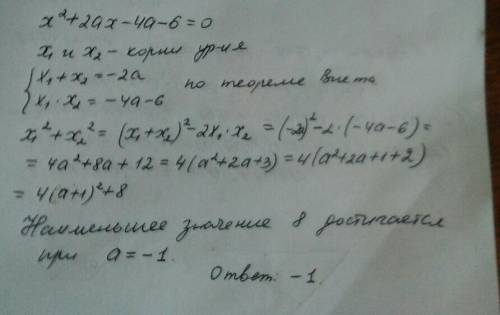 x²+2ax-4a-6=0
x₁ и x₂ - корни ур-ия
{x₁+x₂=-2a
x₁·x₂=-4a-6 по теореме Виета
x₁²+x₂²=(x₁+x₂)²-2x₁·x₂=(-2a)²-2·(-4a-6)=
=4a²+8a+12=4(a²+2a+3)=4(a²+2a+1+2)
=4(a+1)²+8
Наименьшее значение 8 достигается
при a=-1.
Ответ: -1.